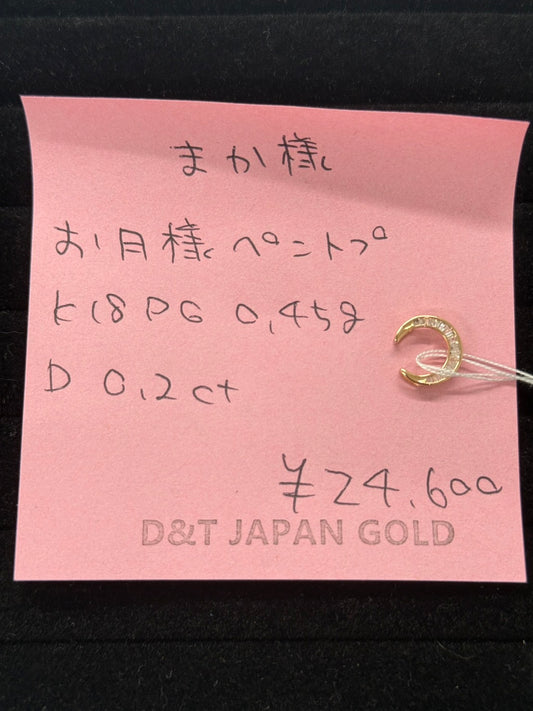 まか様
お月様ペントプ
K18PG 0.45g
D 0.2ct
¥24.600
D&T JAPAN GOLD